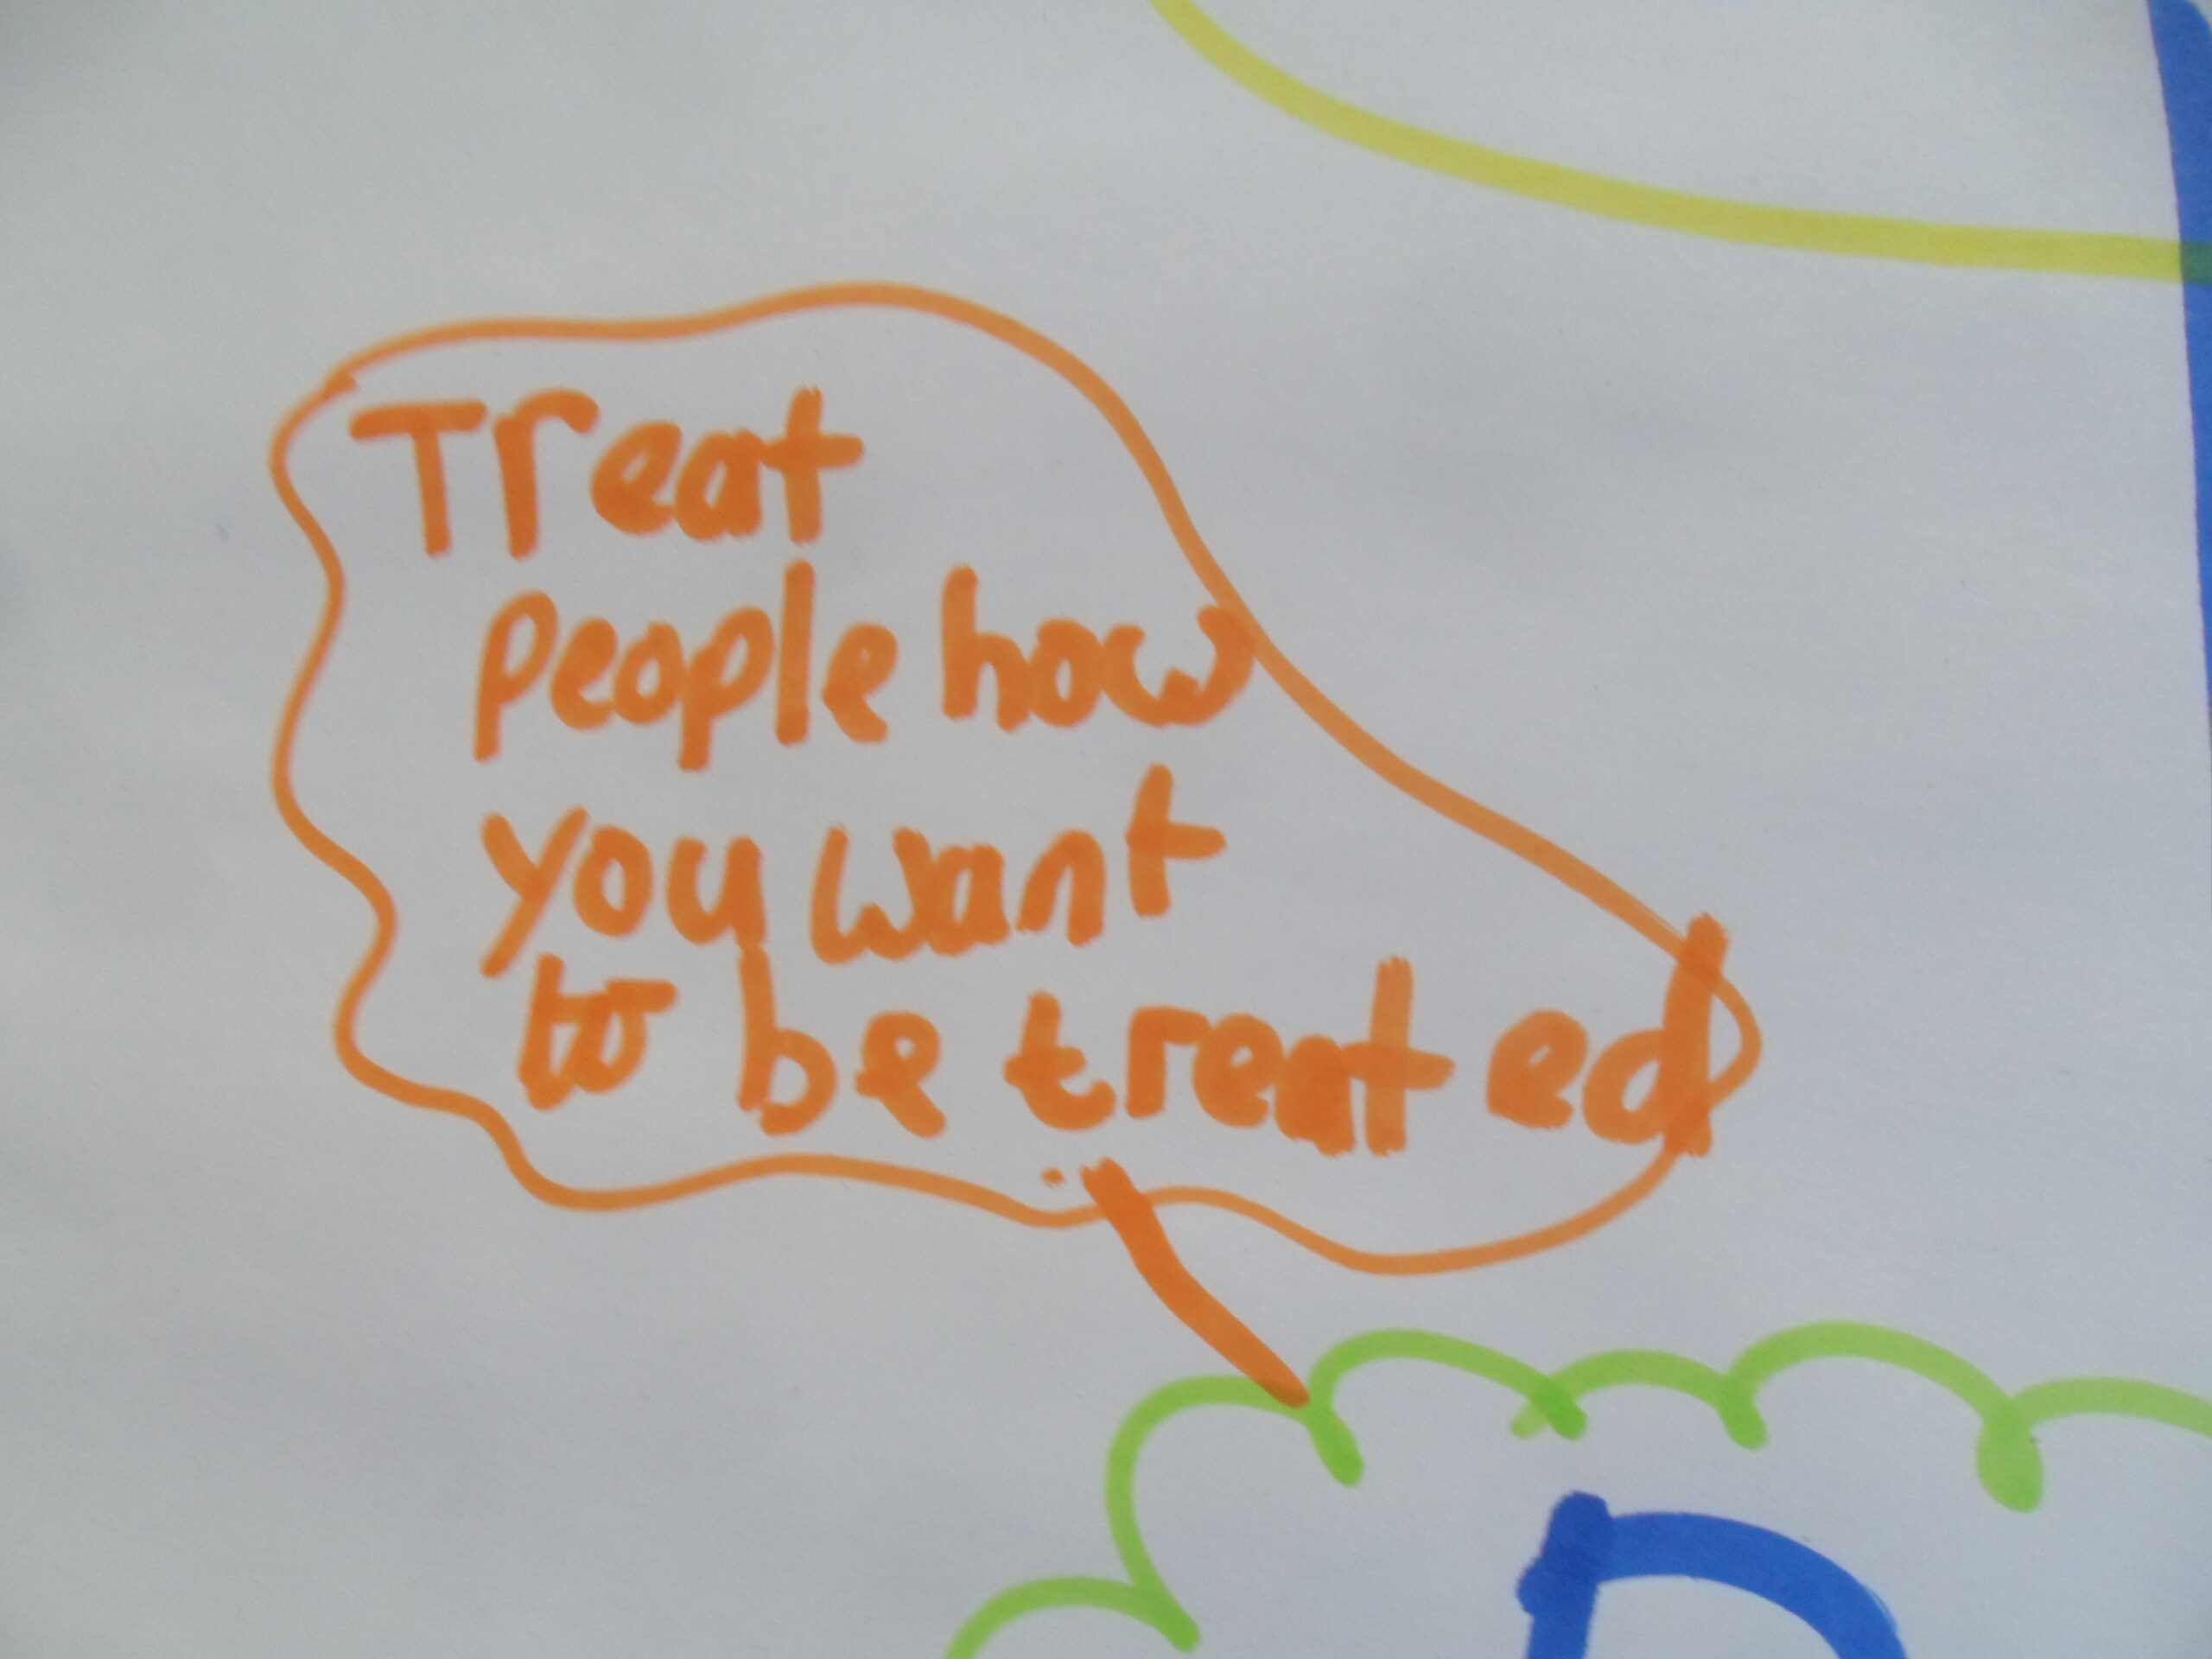 Treat
people how
you want
to be treated